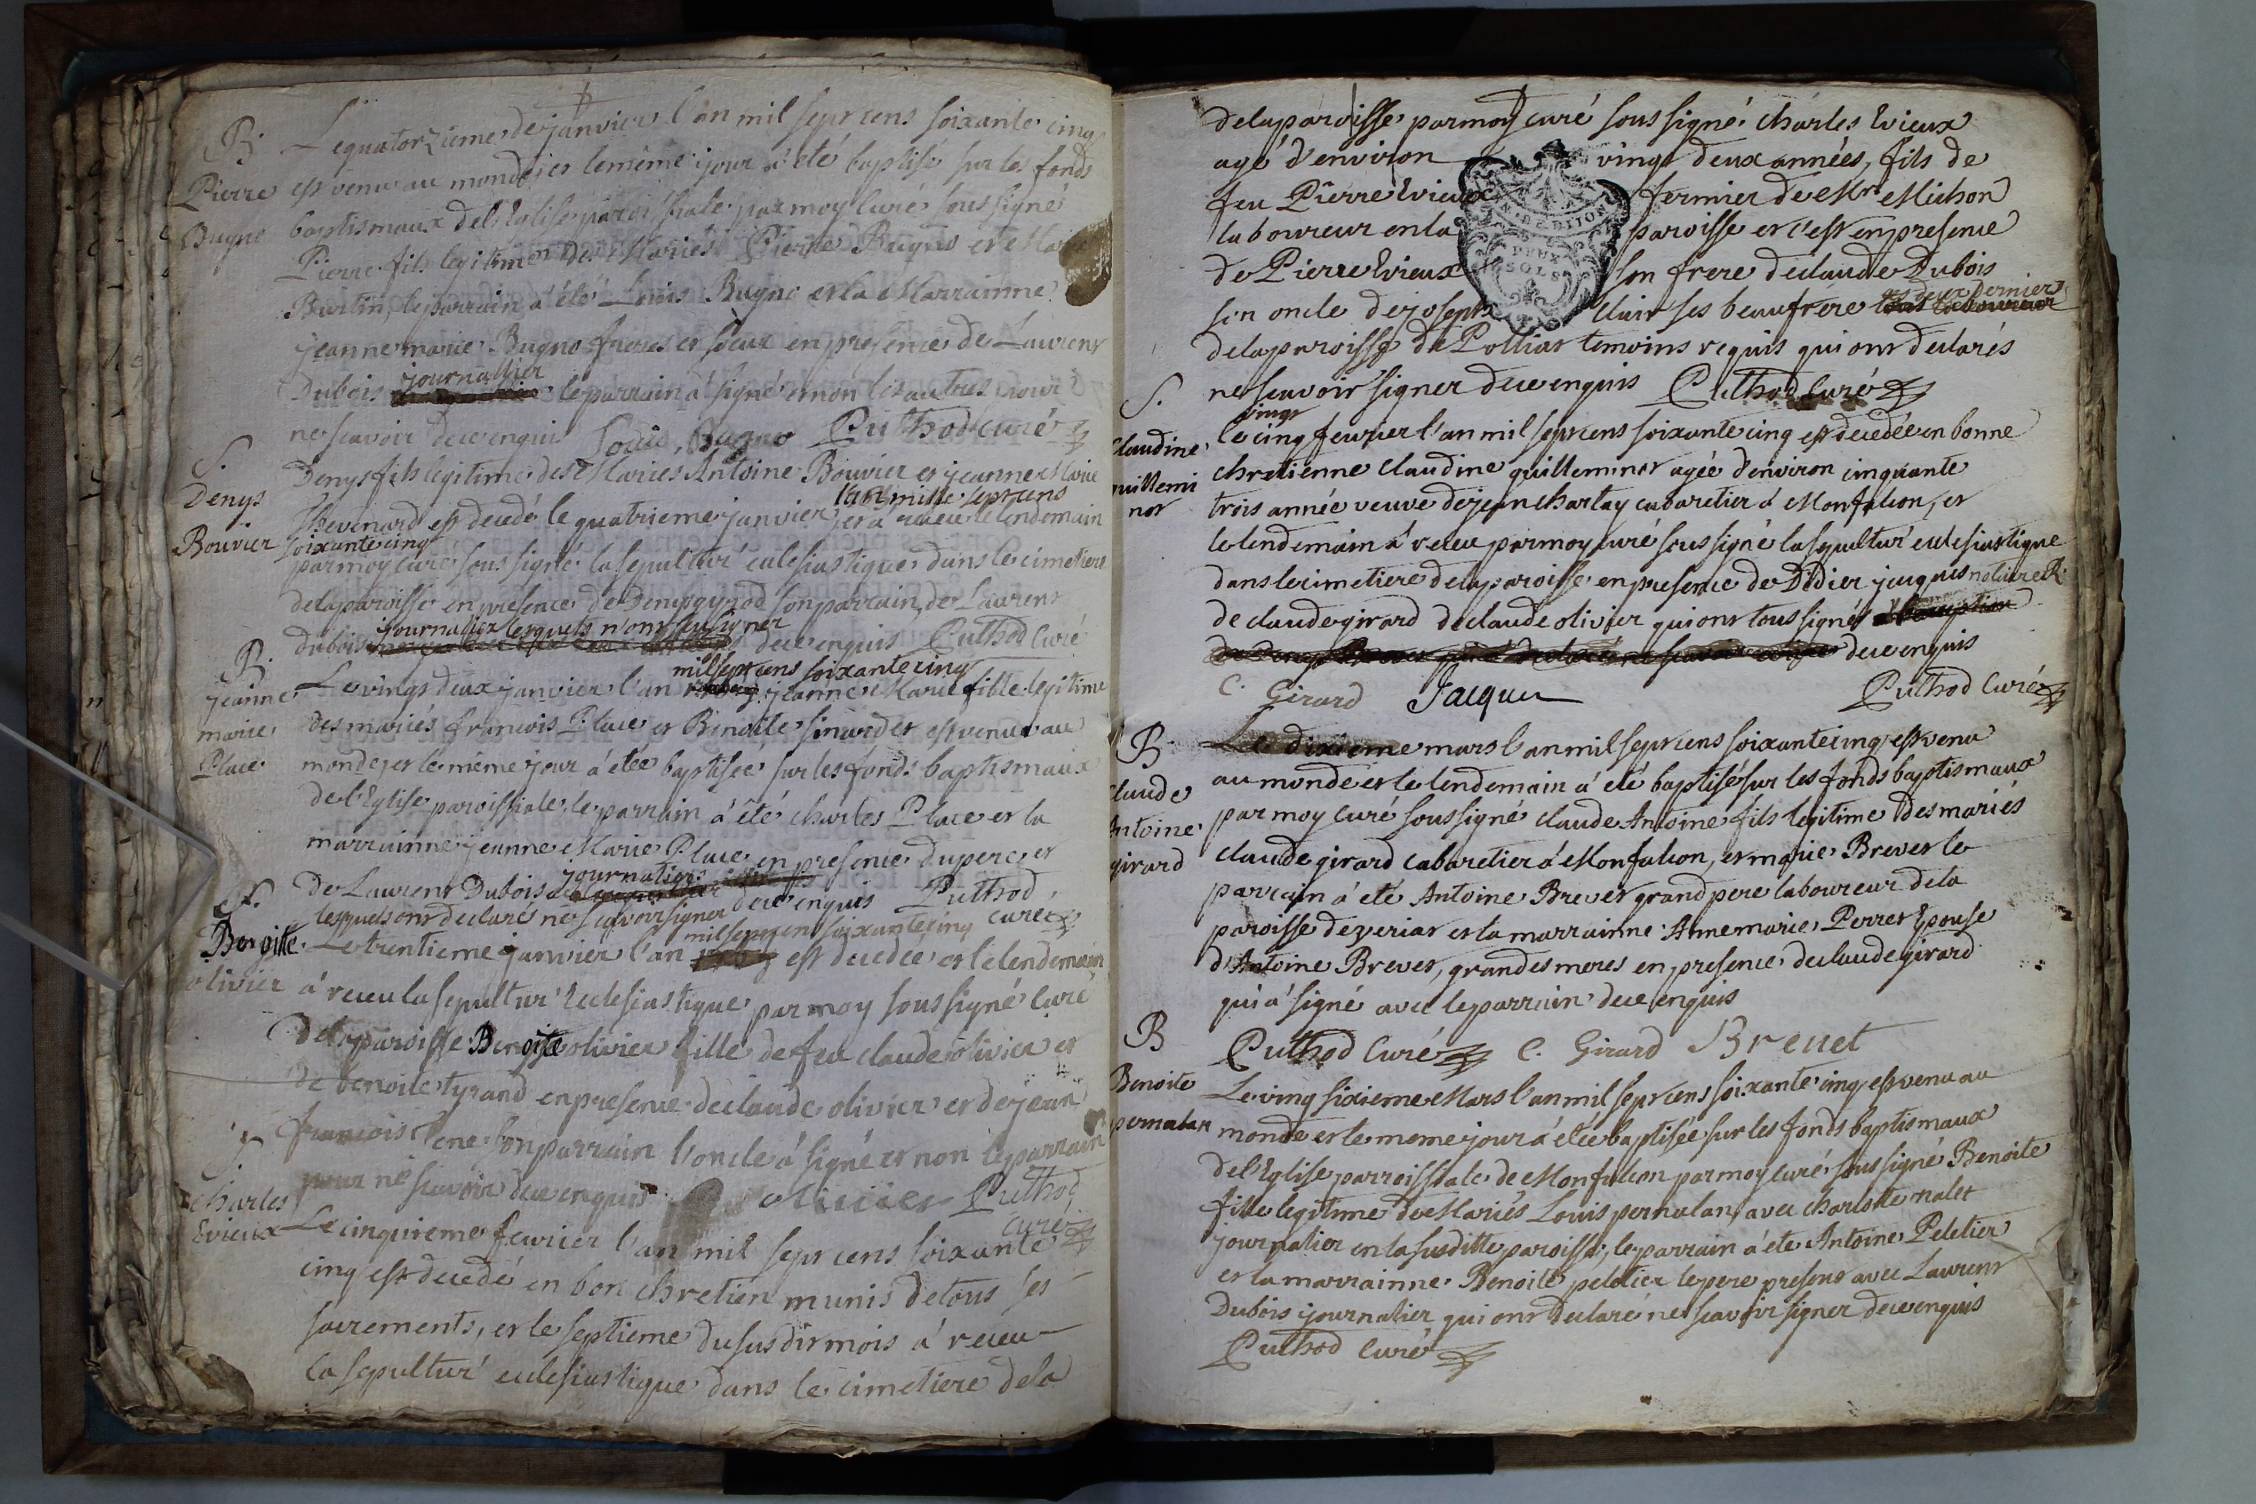 B.
Pierre
Bugno
Le quatorzieme de janvier l'an mil sept cens soixante cinq
est venu au monde et le même jour à eté baptisé sur les fonds
baptismaux de l'Eglise paroissiale par moy Curé soussigné
Pierre fils legitime des Mariés Pierre Bugno et Marie
Burtin, le parrain à été Louis Bugno et la Marrainne
jeanne marie Bugno freres et soeur en presence de Laurent
journallier
Dubois le parrain à signé et non les autres pour
ne scavoir de ce enquis Louis Bugno Puthod curé
S.
Denys
Bouvier
Denys fils legitime des Mariés Antoine Bouvier et jeanne Marie
l'an mille sept cens
Thevenard est decedé le quatrieme janvier et à receu le lendemain
soixante cinq
par moy curé soussigné la sepultur' eclesiastique dans le cimetiere
de la paroisse en presence de Denys gyrod son parrain, de Laurent
journallier lesquels n'ont sçu signer
dubois de ce enquis Puthod Curé
B.
jeanne
marie
Place
mil sept cens soixante cinq
Le vingt deux janvier l'an jeanne Marie fille legitime
des mariés francois Place et Benoite sinardet est venue au
monde et le même jour à étée baptisée sur les fonds baptismaux
de l'Eglise paroissiale, le parrain à êté charles Place et la
marrainne jeanne Marie Place en presence du pere et
journalier
de Laurent Dubois
lesquels ont declaré ne scavoir signer de ce enquis Puthod
curé
S.
Benoite
olivier
mil sept cen soixante cinq
Le trentieme janvier l'an est decedee et le lendemain
à receu la sepultur' Eclesiastique par moy soussigné Curé
de la paroisse Benoite olivier fille de feu claude olivier et
de benoite tyrand en presence de claude olivier et de jean
francois Pene son parrain l'oncle à signé et non le parrain
pour ne scavoir de ce enquis olivier Puthod
curé
S.
Charles
Evieux
Le cinquieme fevrier l'an mil sept cens soixante
cinq est decedé en bon chretien munis de tous ses
sacrements, et le septieme du susdit mois à receu
la sepultur' eclesiastique dans le cimetiere de la
de la paroisse par moy curé soussigné charles Evieux
agé d'environ vingt deux années, fils de
feu Pierre Evieux fermier de Mr Michon
laboureur en la paroisse et c'est en presence
de Pierre Evieux son frere de claude Dubois
ces deux dernier
son oncle de joseph Clair ses beaufrere
de la paroisse de Polliat temoins requis qui ont declarés
ne scavoir signer de ce enquis Puthod Curé
DEUX
SOLS
S.
Claudine
guillemi
not
vingt
le cinq fevrier l'an mil sept cens soixante cinq est decedée en bonne
chretienne Claudine guilleminot agée d'environ cinquante
trois année veuve de jean Charlay cabaretier à Monfalcon, et
le lendemain à receu par moy curé soussigné la sepultur' eclesiastique
dans le cimetiere de la paroisse en presence de Didier jacques notaire R.
de claude girard de claude olivier qui ont tous signés
de ce enquis
C. Girard Jacques Puthod Curé
B.
claude
Antoine
girard
Le dixieme mars l'an mil sept cens soixante cinq est venu
au monde et le lendemain à été baptisé sur les fonds baptismaux
par moy curé soussigné claude Antoine fils legitime des mariés
claude girard cabaretier à Monfalcon, et marie Brevet le
parrain à eté Antoine Brevet grand pere laboureur de la
paroisse de veriat et la marrainne Anne marie Perret Epouse
d'Antoine Brevet, grandes meres en presence de claude girard
qui à signé avec le parrain de ce enquis
Puthod Curé C. Girard Brevet
B
Benoite
pernalan
Le vingt sixieme Mars l'an mil sept cens soixante cinq est venu au
monde et le meme jour à etee baptisée sur les fonds baptismaux
de l'Eglise parroissiale de Monfalcon par moy curé soussigné Benoite
fille legitime des Mariés Louis pernalan avec charlotte nalet
journalier en la susditte paroisse, le parrain à eté Antoine Peletier
et la marrainne Benoite peletier le pere present avec Laurent
Dubois journalier qui ont declaré ne scavoir signer de ce enquis
Puthod Curé